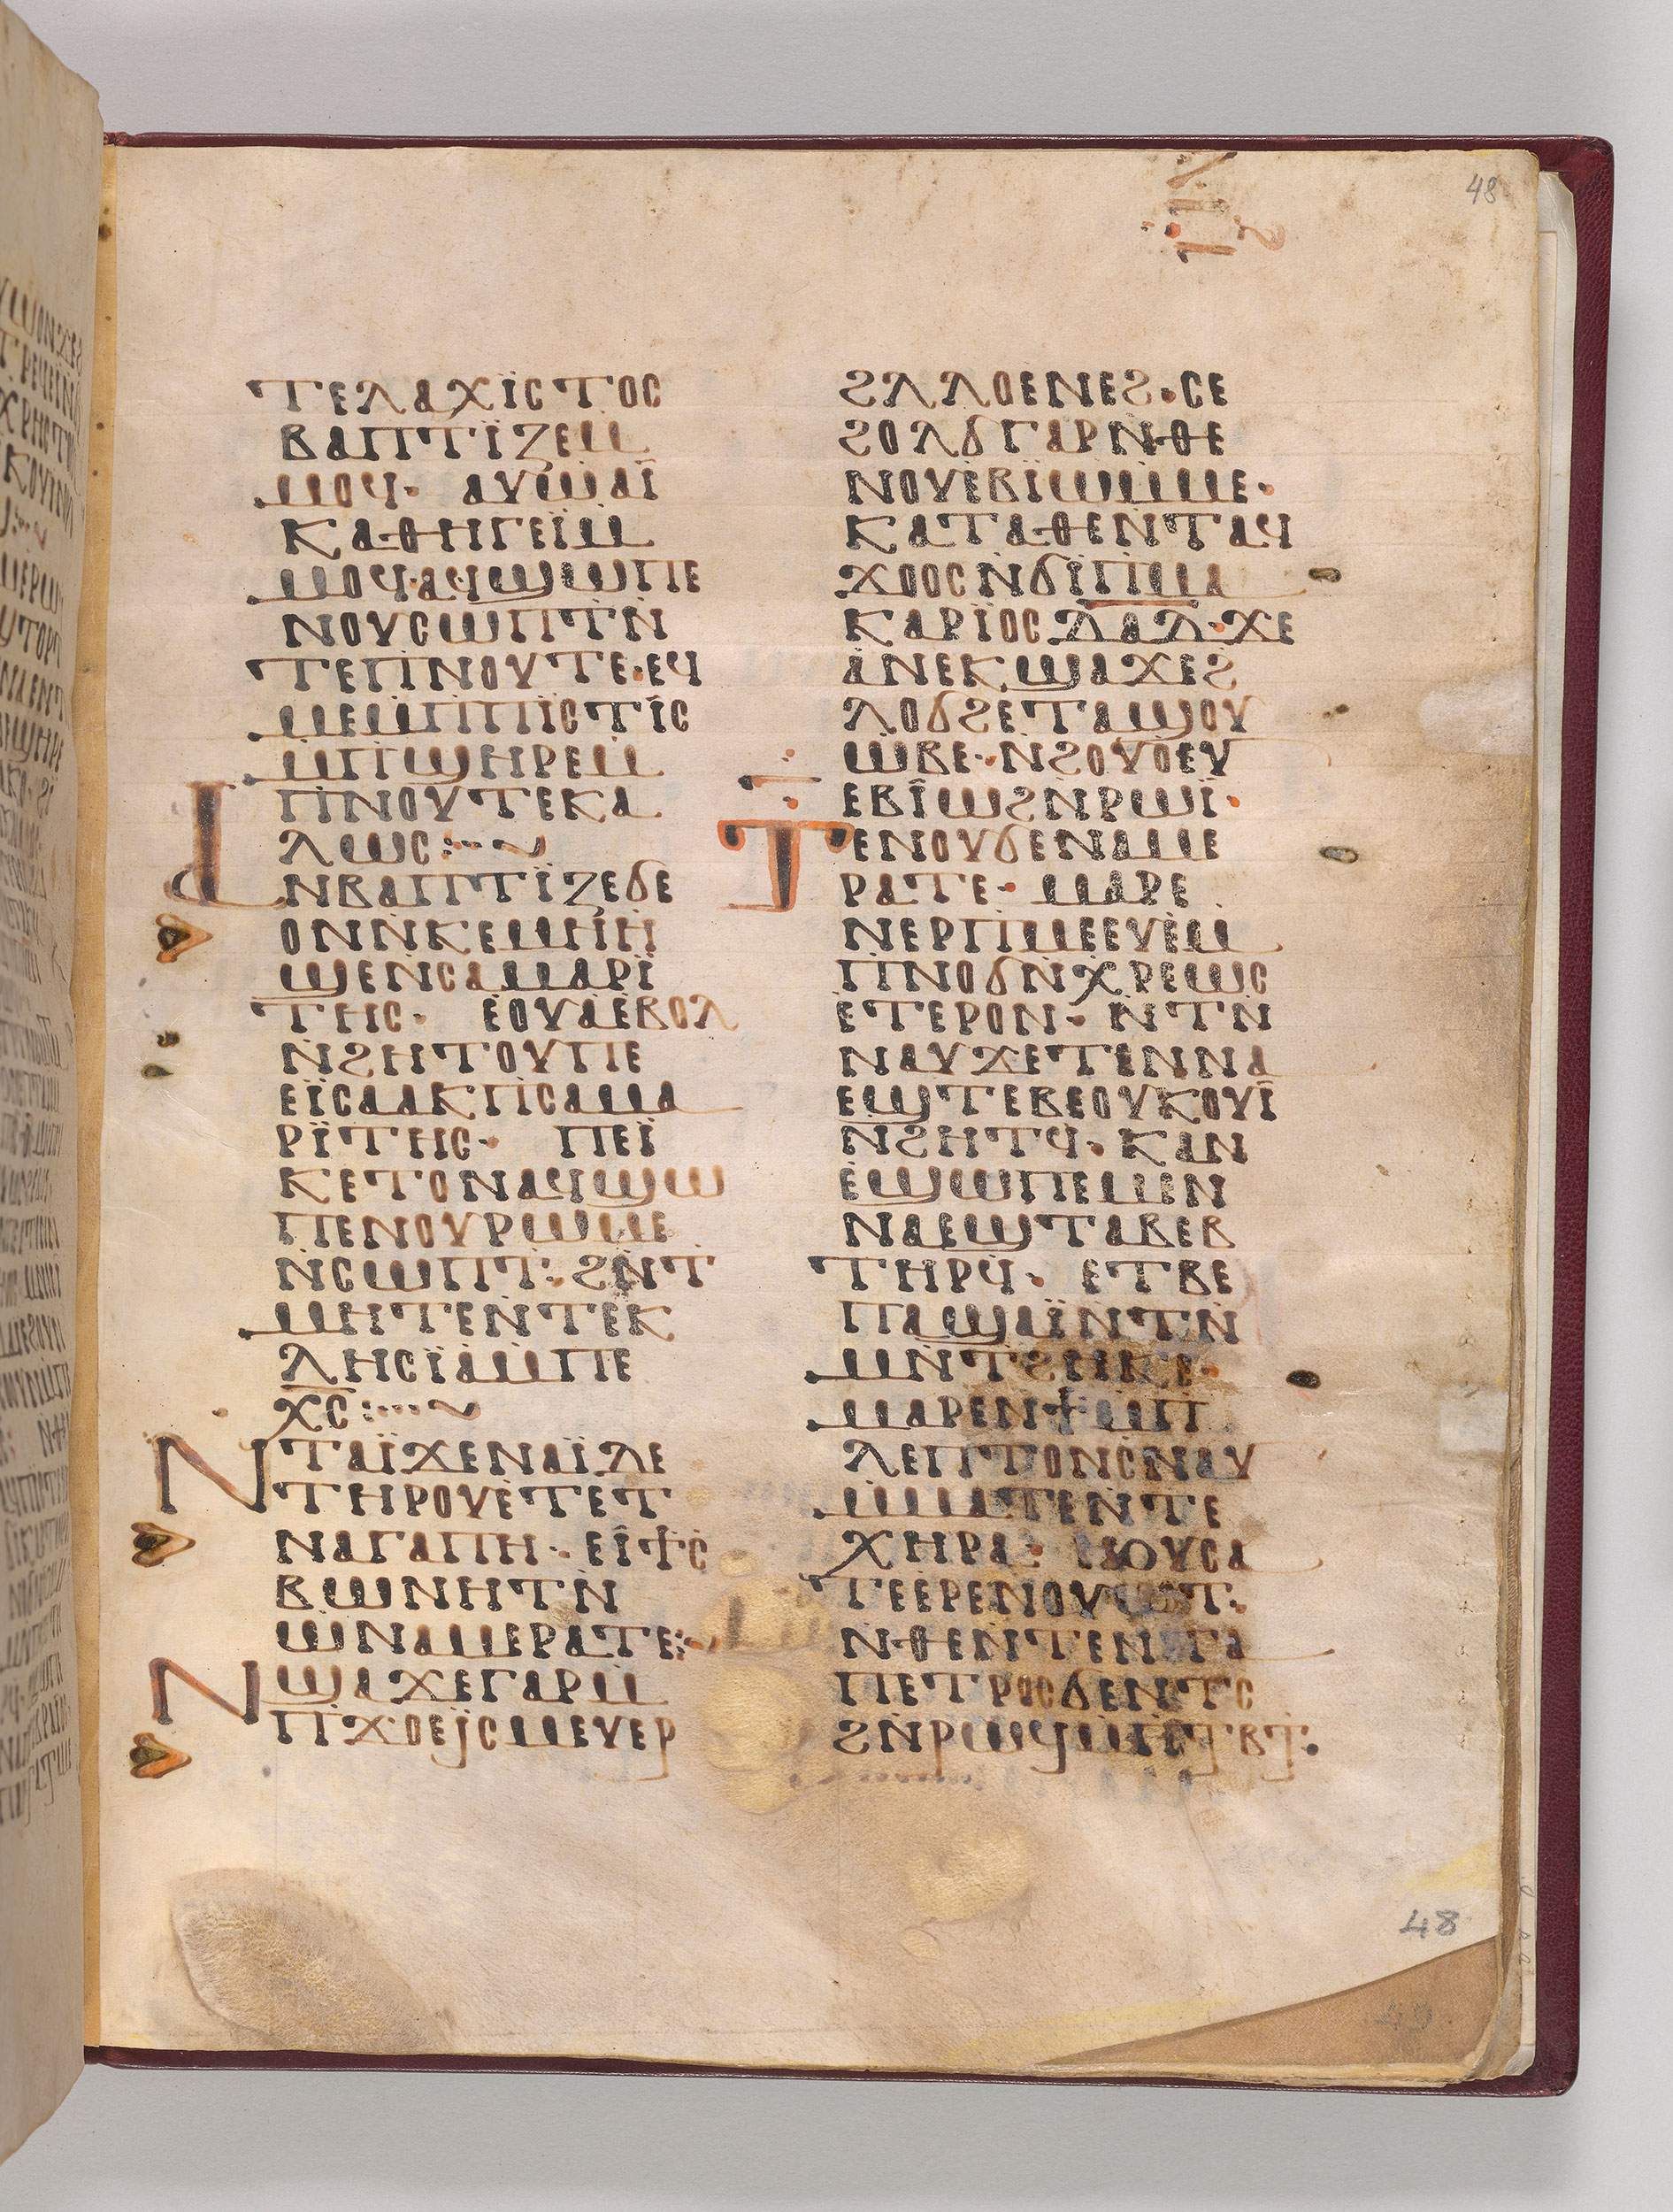 48
ⲧⲉⲗⲁⲭⲓ̈ⲥⲧⲟⲥ
ⲃⲁⲡⲧⲓ̈ⲍⲉⲙ
ⲙⲟϥ· ⲁⲩⲱⲁⲓ̈
ⲕⲁⲑⲏⲅⲉⲓ̈ⲙ
ⲙⲟϥ·ⲁϥϣⲱⲡⲉ
ⲛⲟⲩⲥⲱⲡⲧⲛ̇
ⲧⲉⲡⲛⲟⲩⲧⲉ·ⲉϥ
ⲙⲉⲙⲡⲡⲓ̈ⲥⲧⲓ̈ⲥ
ⲙ̇ⲡϣⲏⲣⲉⲙ
ⲡⲛⲟⲩⲧⲉⲕⲁ
ⲗⲱⲥ
ⲁⲛⲃⲁⲡⲧⲓ̈ⲍⲉϭⲉ
ⲟⲛⲛ̇ⲕⲉⲙⲏⲏ
ϣⲉⲛ̇ⲥⲁⲙⲁⲣⲓ̈
ⲧⲏⲥ· ⲉ̇ⲟⲩⲁ̇ⲉ̇ⲃⲟⲗ
ⲛ̇ϩⲏⲧⲟⲩⲡⲉ
ⲉⲓ̈ⲥⲁⲁⲕⲡⲥⲁⲙⲁ
ⲣⲓ̈ⲧⲏⲥ· ⲡⲉⲓ̈
ⲕⲉⲧⲟⲛⲁϥϣⲱ
ⲡⲉⲛⲟⲩⲣⲱⲙⲉ
ⲛ̇ⲥⲱⲡⲧ: ϩⲛ̇ⲧ
ⲙⲏⲧⲉⲛ̇ⲧⲉⲕ
ⲗⲏⲥⲓ̈ⲁⲙ̇ⲡⲉ
ⲭ̅ⲥ̅
ⲛⲧⲁⲓ̈ϫⲉⲛⲁⲓ̈ⲇⲉ
ⲧⲏⲣⲟⲩⲉ̇ⲧⲉⲧ
ⲛⲁⲅⲁⲡⲏ· ⲉⲓ̈ϯⲥ
ⲃⲱⲛⲏⲧⲛ̇
ⲱ̇ⲛⲁⲙⲉⲣⲁⲧⲉ:
ⲛϣⲁϫⲉⲅⲁⲣⲙ
ⲡϫⲟⲉⲓⲥⲙⲉⲩⲉⲣ
ϩⲗⲗⲟⲉⲛⲉϩ·ⲥⲉ
ϩⲟⲗϭⲅⲁⲣⲛ̇ⲑⲉ
ⲛⲟⲩⲉ̇ⲃⲓ̈ⲱⲙ̇ⲙⲉ·
ⲕⲁⲧⲁⲑⲉⲛ̇ⲧⲁϥ
ϫⲟⲟⲥⲛ̇ϭⲓ̈ⲡⲙⲁ
ⲕⲁⲣⲓ̈ⲟⲥⲇ̅ⲁ̅ⲇ̅·ϫⲉ
ⲁ̇ⲛⲉⲕϣⲁϫⲉϩ
ⲗⲟϭϩⲉⲧⲁϣⲟⲩ
ⲱ̇ⲃⲉ·ⲛ̇ϩⲟⲩⲟ̇ⲉⲩ
ⲉⲃⲓ̈ⲱϩⲛ̇ⲣⲱⲓ̈·
ⲧⲉⲛⲟⲩϭⲉⲛⲁⲙⲉ
ⲣⲁⲧⲉ· ⲙⲁⲣⲉ
ⲛⲉⲣⲡⲙⲉⲉⲩⲉ̇ⲙ
ⲡⲛⲟϭⲛ̇ⲭⲣⲉⲱⲥ
ⲉ̇ⲧⲉⲣⲟⲛ· ⲛ̇ⲧⲛ̇
ⲛⲁⲩϫⲉⲧⲉⲛⲛⲁ
ⲉϣⲧⲉⲃⲉⲟⲩⲕⲟⲩⲓ̈
ⲛ̇ϩⲏⲧϥ· ⲕⲁⲛ
ⲉ̇ϣⲱⲡⲉⲙⲉⲛ
ⲛⲁⲉϣⲧⲁⲃⲉⲃ
ⲧⲏⲣϥ· ⲉⲧⲃⲉ
ⲡⲁϣⲁⲓ̈ⲛ̇ⲧⲛ̇
ⲙⲛ̇ⲧϩⲏⲕⲉ·
ⲙⲁⲣⲉⲛϯⲙⲡ
ⲗⲉⲡⲧⲟⲛⲥⲛⲁⲩ
ⲙ̇ⲙⲁⲧⲉⲛ̇ⲧⲉ
ⲭⲏⲣⲁ:
ⲧⲉⲉ̇ⲣⲉⲛⲟⲩ
ⲛ̇ⲑⲉⲛ̇ⲧⲉⲛⲧⲁ
ⲡⲉⲧⲣⲟⲥϭⲉⲛⲧⲥ
ϩⲛ̇ⲣⲱϥⲙ̇ⲡⲧⲃⲧ:
48
49